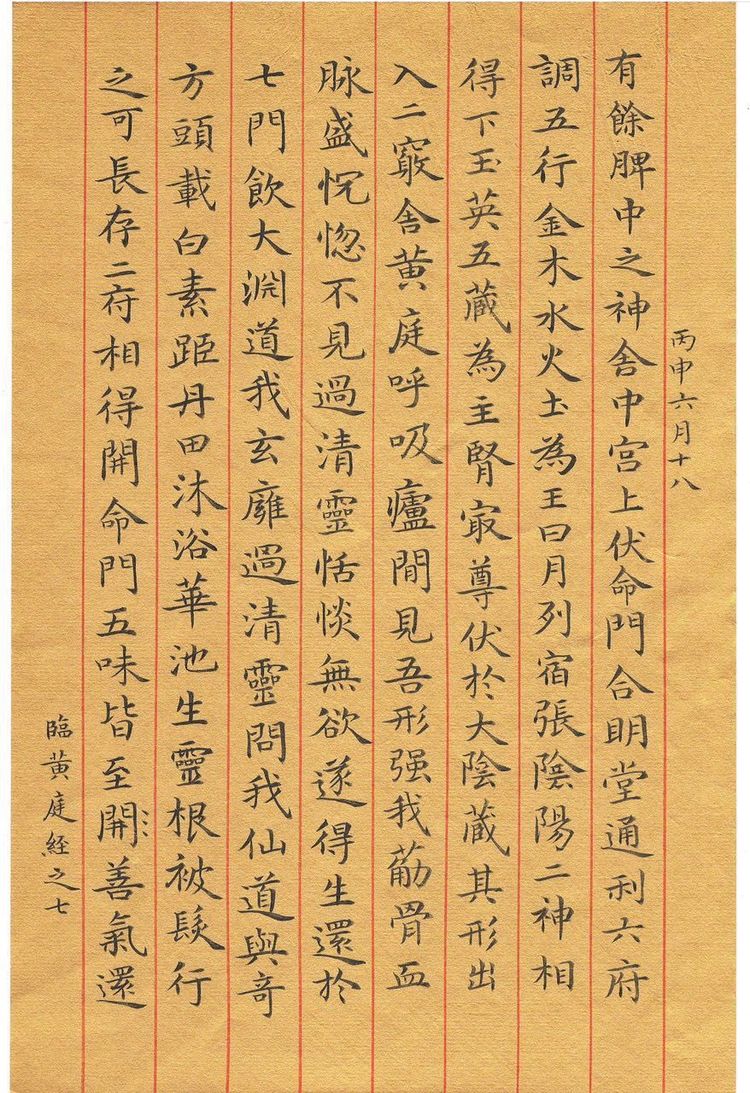 丙申六月十八
有餘脾中之神舍中宮上伏命門合明堂通利六府
調五行金木水火土為王日月列宿張陰陽二神相
得下玉英五藏為主腎㝡尊伏於大陰藏其形出
入二竅舍黃庭呼吸廬間見吾形强我筋骨血
脉盛恍惚不見過清靈恬惔無欲遂得生還於
七門飲大淵道我玄廱過清靈問我仙道與奇
方頭載白素距丹田沐浴華池生靈根被髮行
之可長存二府相得開命門五味皆至開善氣還
臨黃庭経之七